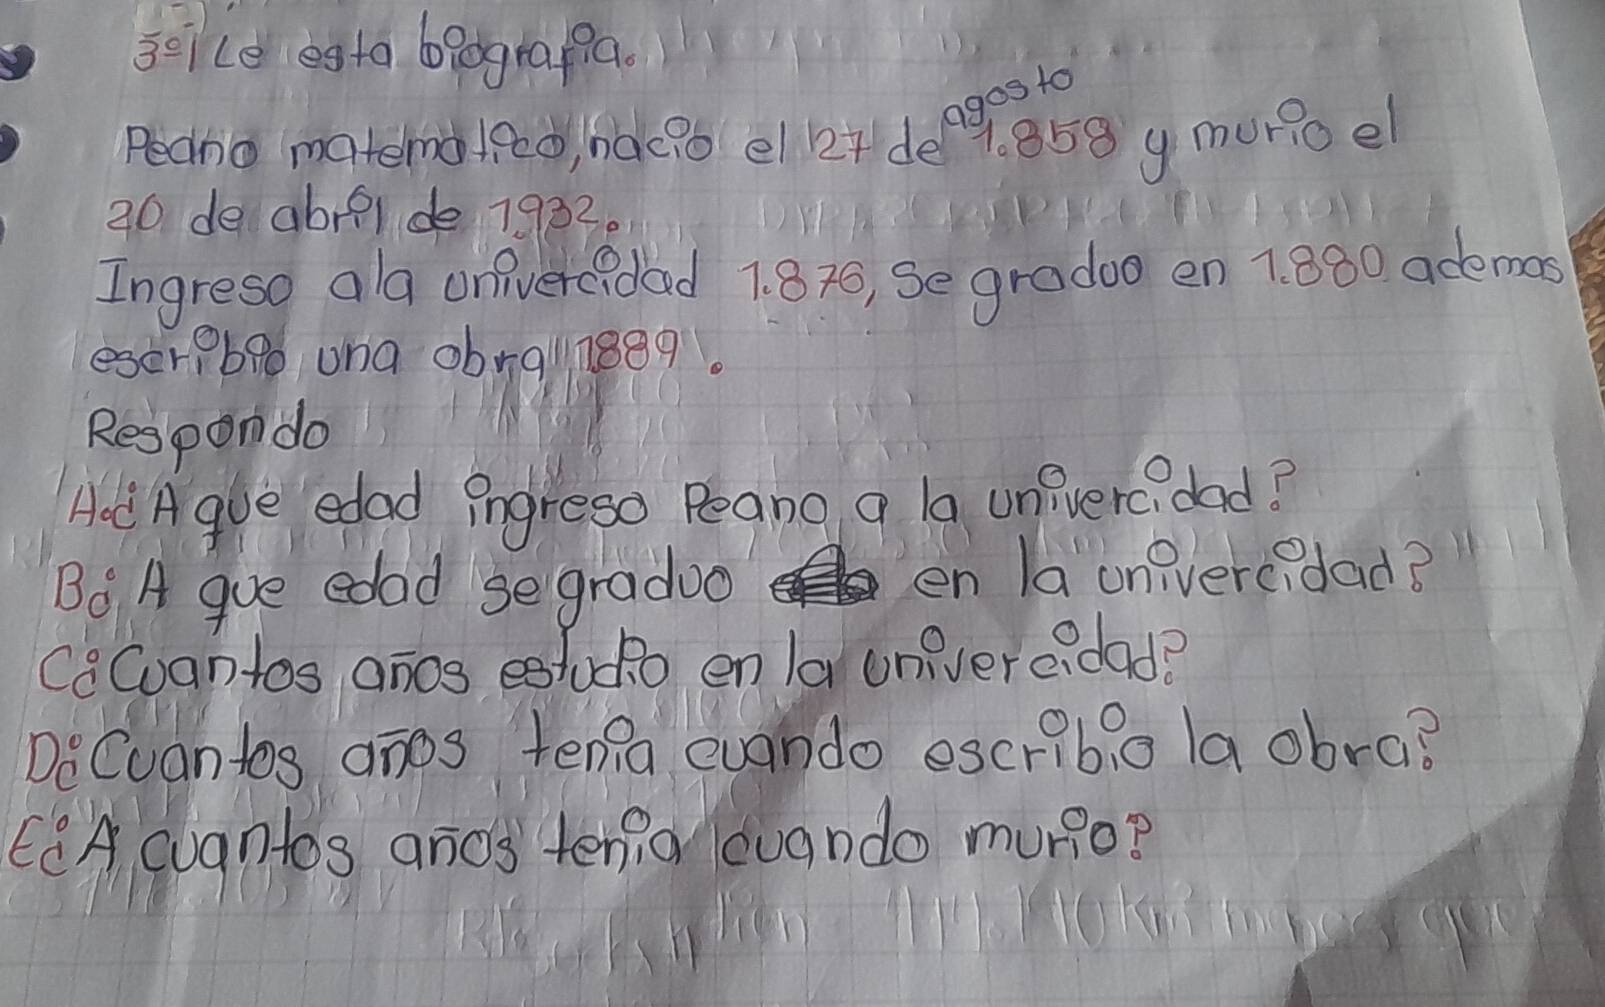 3º| Le esta biografia.
Peano matematico, nacio el 27 de agosto 1.858 y murio el
20 de abril de 1.932.
Ingreso ala univercidad 1.876, Se graduo en 1.880 ademas
escribio una obra 1889.
Respondo
A.¿A que edad ingreso Peano a la univercidad?
B¿A que edad se graduo en la univercidad?
C¿Cuantos años estudio en la univercidad?
D¿Cuantos años tenia cuando escribio la obra?
E¿A cuantos años tenia cuando murio?